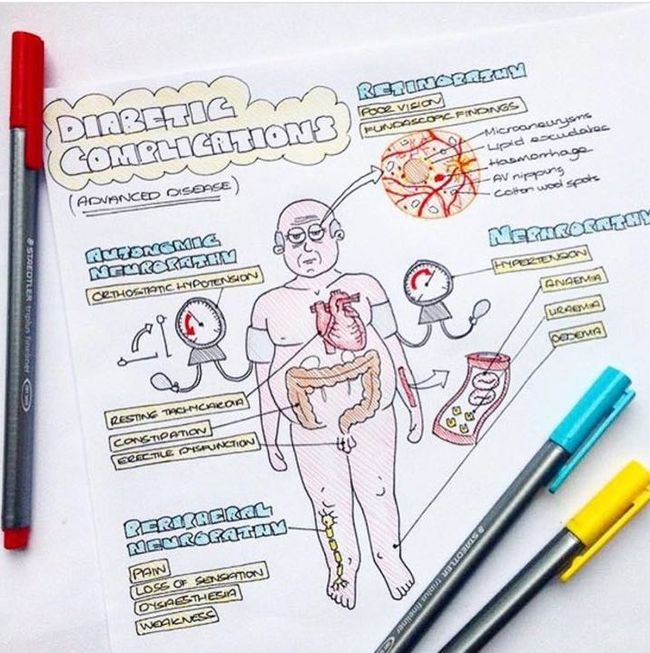 DIABETIC
COMPLICATIONS
(ADVANCED DISEASE)
RETINOPATHY
POOR VISION
FUNDASCOPIC FINDINGS
Microaneurysms
Lipid exudates
Haemorrhage
AV nipping
Cotton wool spots
AUTONOMIC
NEUROPATHY
ORTHOSTATIC HYPOTENSION
NEPHROPATHY
HYPERTENSION
ANAEMIA
URAEMIA
OEDEMA
RESTING TACHYCARDIA
CONSTIPATION
ERECTILE DYSFUNCTION
PERIPHERAL
NEUROPATHY
PAIN
LOSS OF SENSATION
DYSAESTHESIA
WEAKNESS
STAEDTLER triplus fineliner
STAEDTLER triplus fineliner